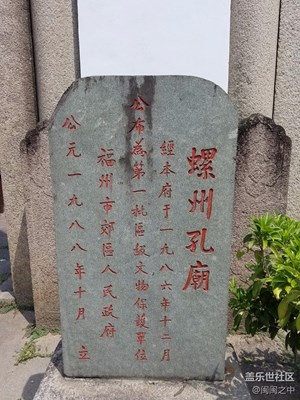 螺州孔廟
經本府于一九八六年十二月
公布為第一批區級文物保護單位
福州市郊區人民政府
公元一九八八年十月立
盖乐世社区
@闽闽之中